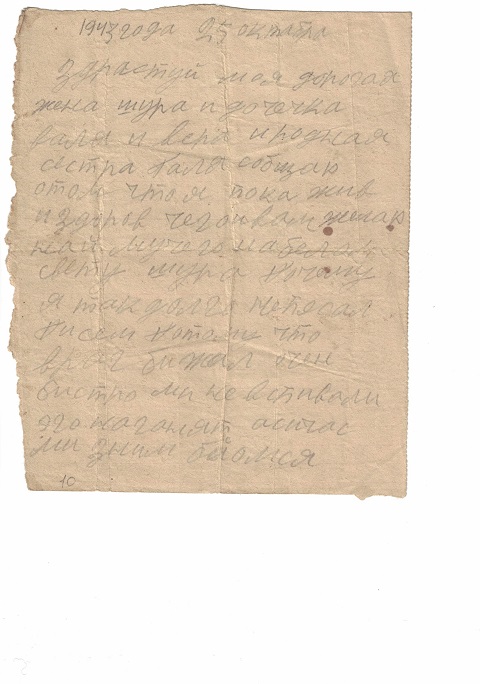 1943 года 25 октября
здраствуй моя дорогая
жена шура и дочечка
валя и вера и родная
сестра галя сообщаю
отом что я пока жив
и здоров чего и вам желаю
на белам
свети шура почему
я так долга непесал
писем потому что
враг бижал очен
бистро ми не вспивали
его наганят асичас
ми зним бъомся
10